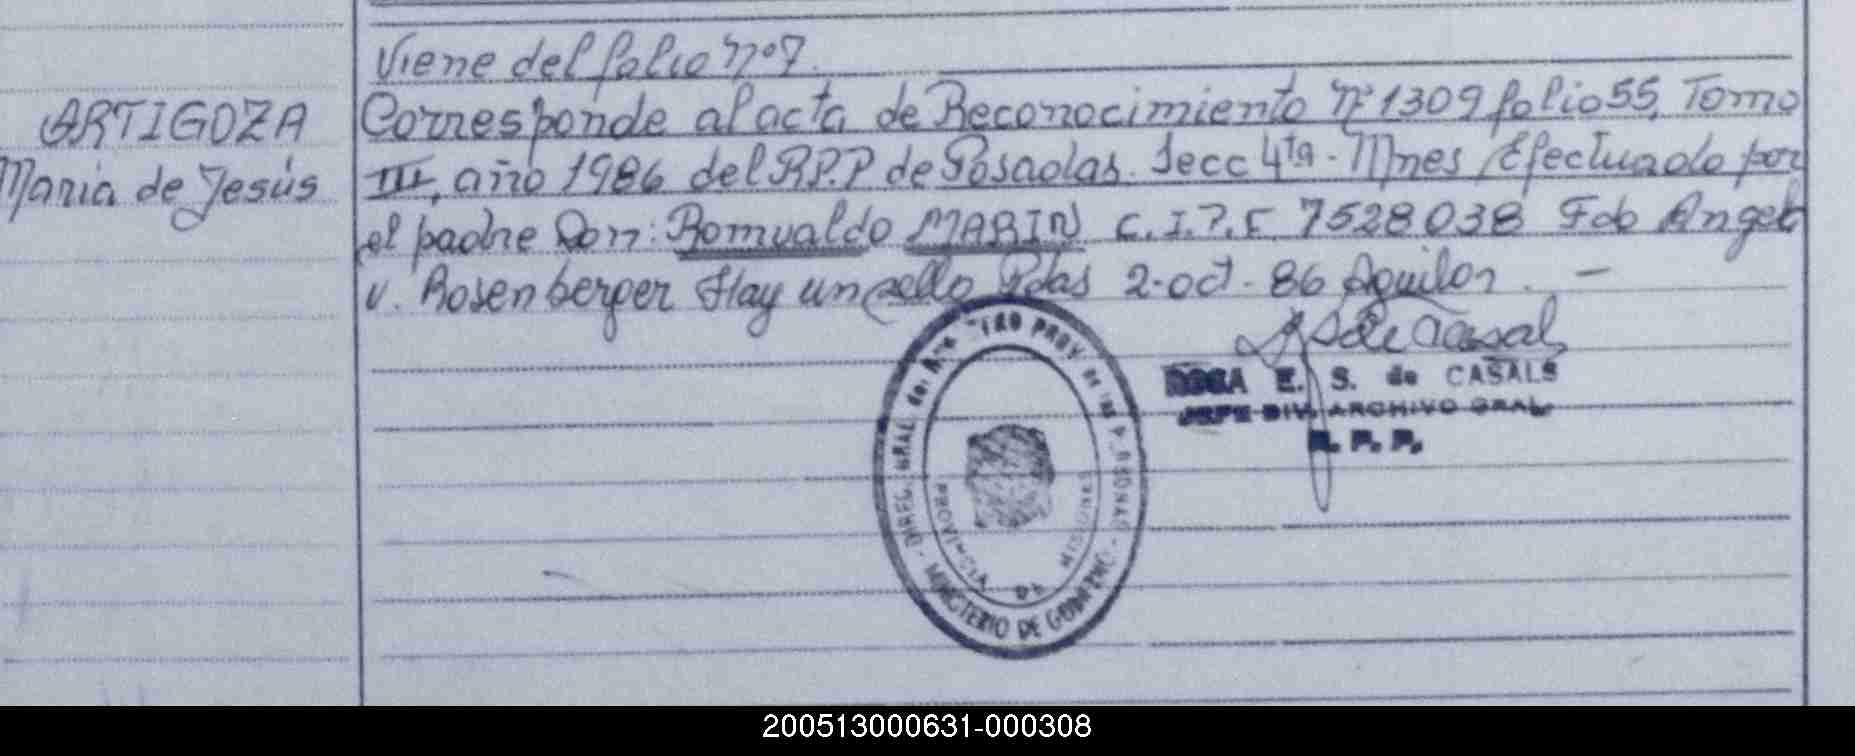 Viene del folio nº 7.
ARTIGOZA
Maria de Jesús
Corresponde al acta de Reconocimiento Nº 1309 folio 55, Tomo
III, año 1986 del R.P.P de Posadas. Secc 4ta - Mnes / Efectuado por
el padre Don: Romualdo MARIN C.I.P.F. 7528038 Fdo Angel
v. Rosenberger Hay un sello Pdas 2-oct-86 Aguilar. -
ROSA E. S. de CASALS
JEFE DIV. ARCHIVO GRAL
R. P. P.
DIREC. GRAL. del PROV. de las
PROVINCIA DE MISIONES
MINISTERIO DE GOBIERNO
200513000631-000308